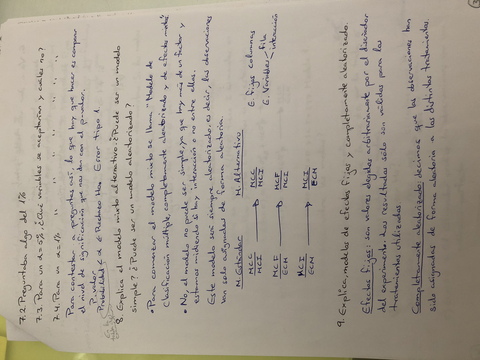 7.2 Preguntaban algo del 1%
7.3. Para un α=5% ¿Qué variables se aceptarían y cuáles no?
7.4. Para un α=1% " " " " " "
Para contestar a preguntas así, lo que hay que hacer es comparar
el nivel de significación que nos dan con el p-valor.
P-valor
Probabilidad < α → Rechazo Ho. Error tipo I.
8. Explica el modelo mixto alternativo. ¿Puede ser un modelo
simple? ¿Puede ser un modelo aleatorizado?
• Para comenzar el modelo mixto se llama "Modelo de
Clasificación múltiple, completamente aleatorizado y de efecto mixto"
• No, el modelo no puede ser simple, ya que hay más de un factor y
estamos midiendo si hay interacción o no entre ellas.
Este modelo será siempre aleatorizado, es decir, las observaciones
han sido asignadas de forma aleatoria.
M. Alternativo
MCC → MCC E. Fijos columnas
MCI MCI E. Variables - Fila
interacción
MCF → MCF
ECM MCI
MCI → MCI
ECM ECM
9. Explica modelos de efectos fijos y completamente aleatorizado.
Efectos fijos: son valores elegidos arbitrariamente por el diseñador
del experimento. Los resultados sólo son válidos para los
tratamientos utilizados
Completamente aleatorizado decimos que las observaciones han
sido asignadas de forma aleatoria a los distintos tratamientos.